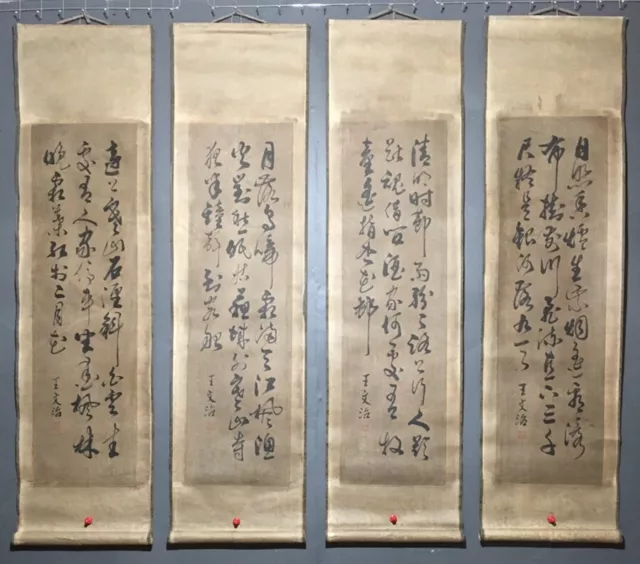 日照香爐生紫烟遙看瀑
布掛前川飛流直下三千
尺疑是銀河落九天
王文治
清明時節雨紛々路上行人欲
斷魂借問酒家何處有牧
童遙指杏花邨
王文治
月落烏啼霜滿天江楓漁
火對愁眠姑蘇城外寒山寺
夜半鐘聲到客船
王文治
遠上寒山石徑斜白雲生
處有人家停車坐愛楓林
晚霜葉紅於二月花
王文治